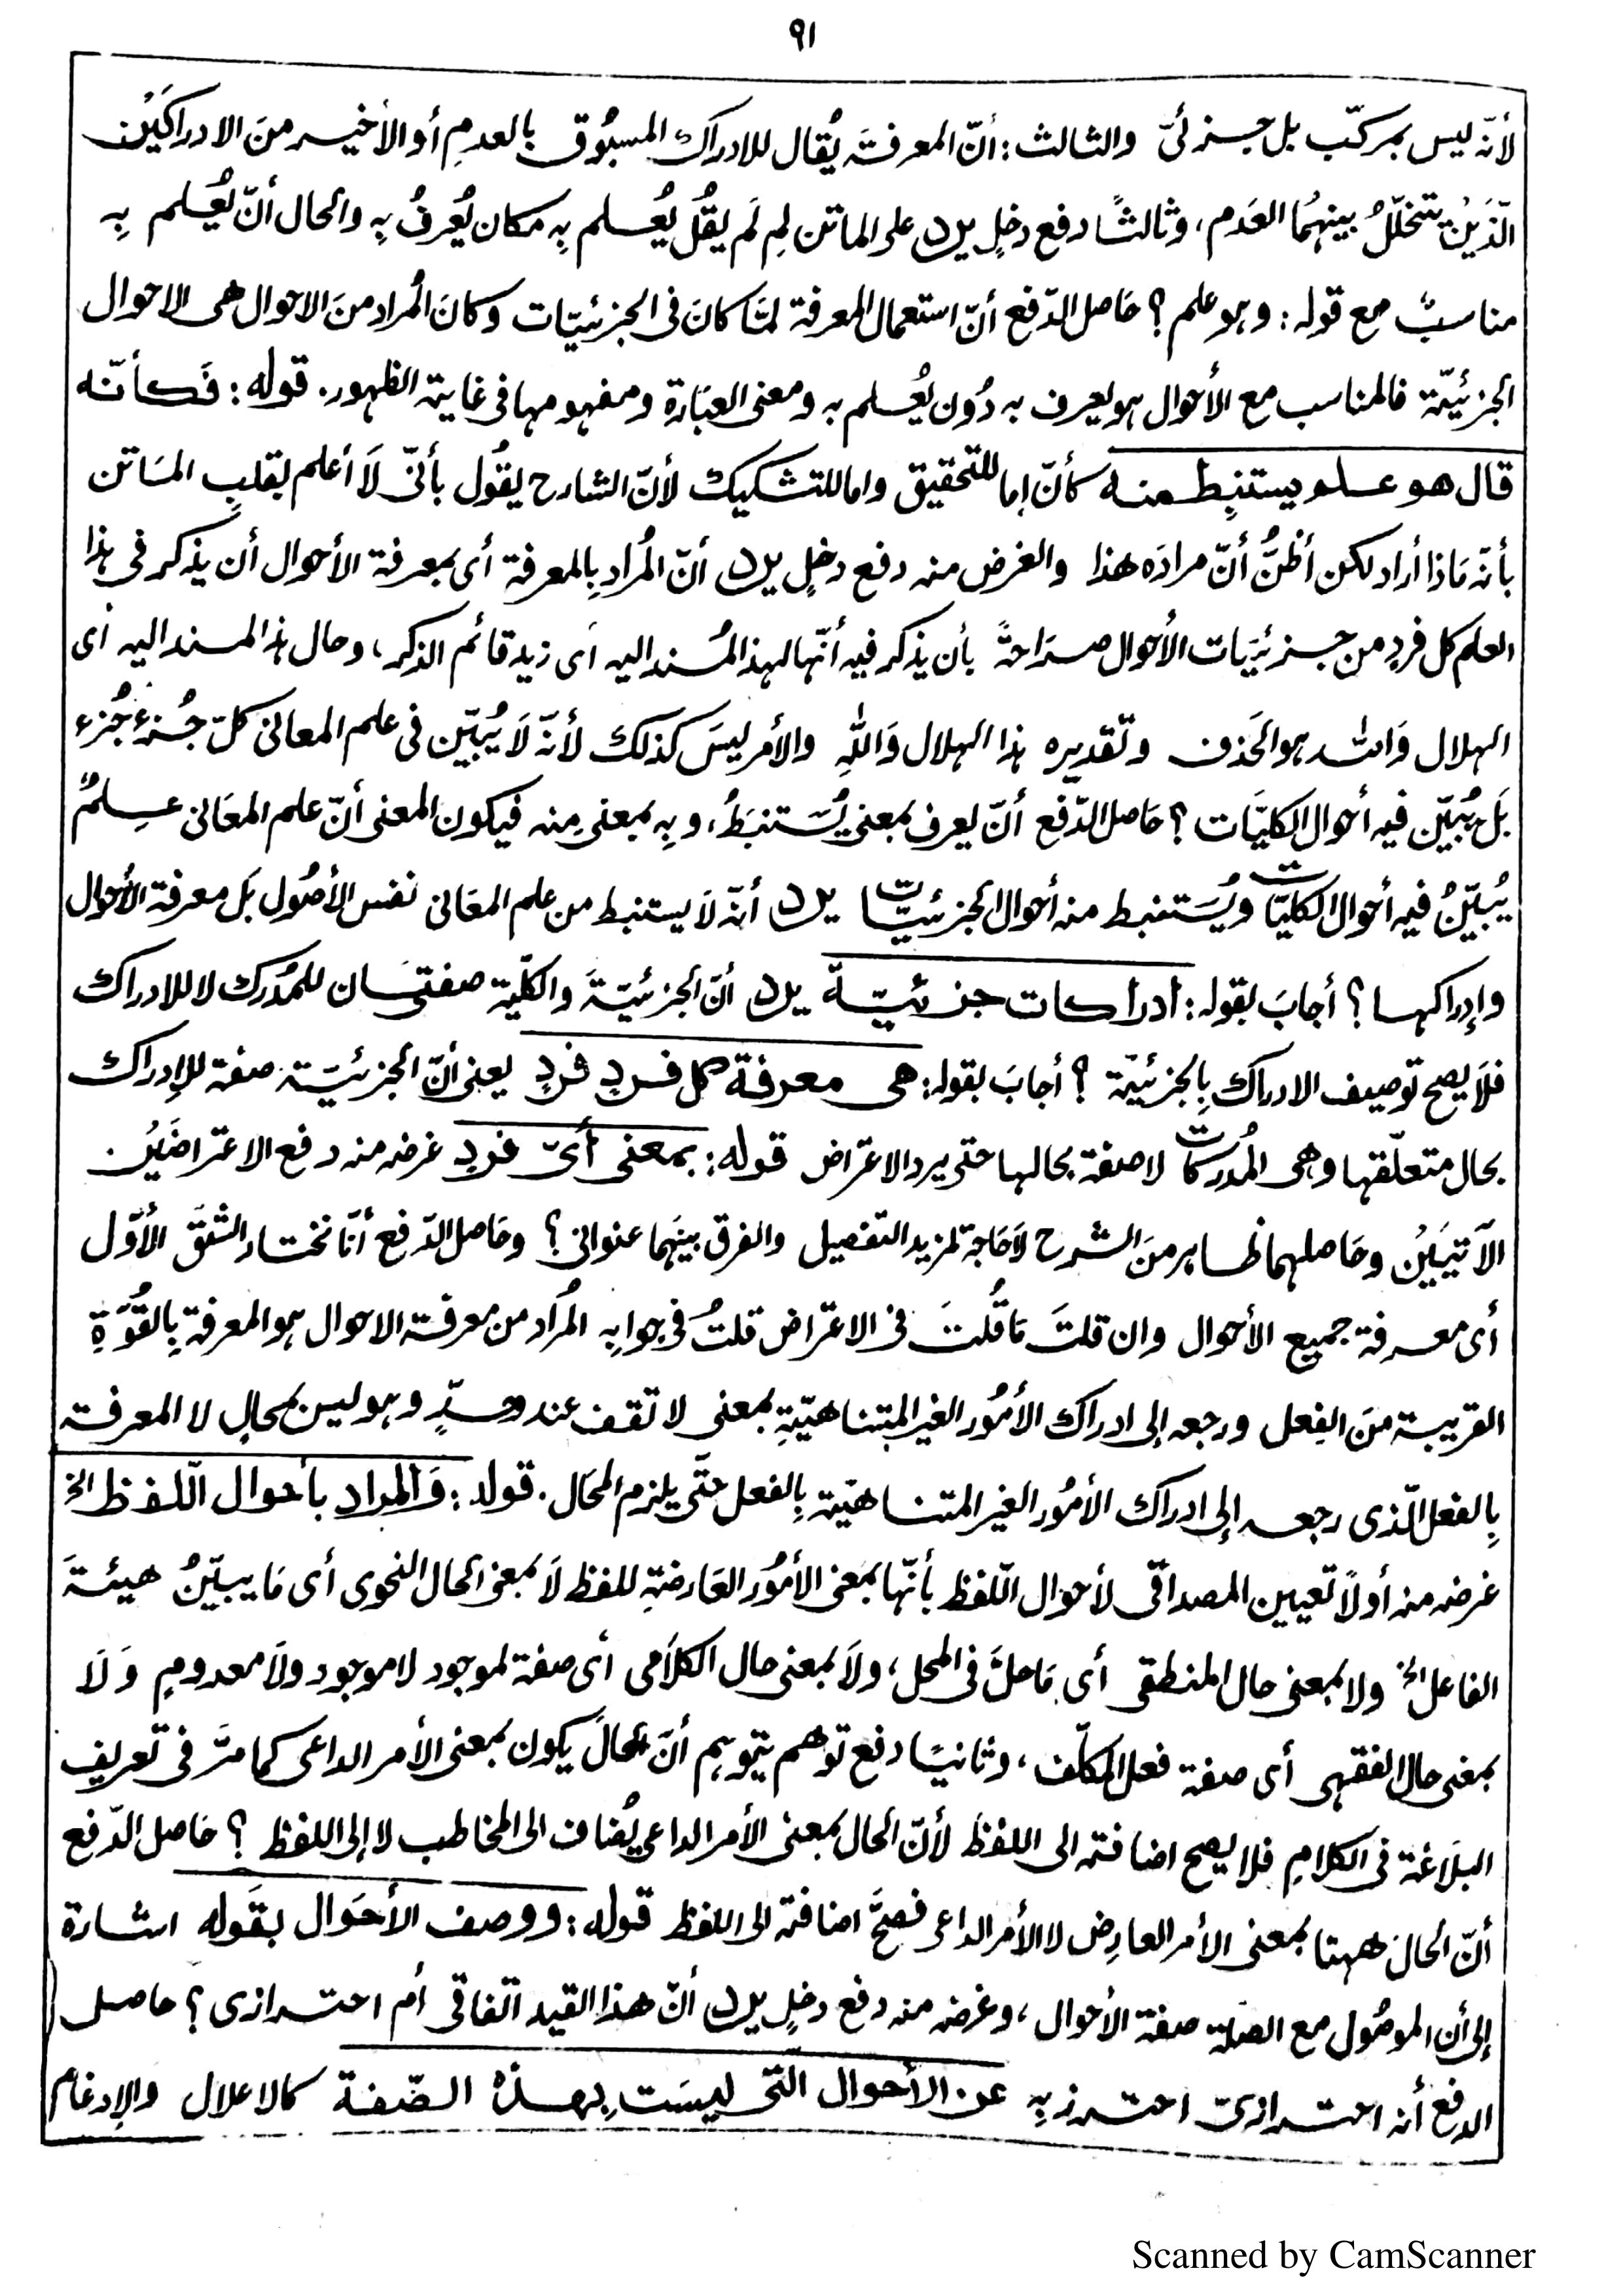 ٩١
لأنّه ليس بمركّب بل جزئىّ والثالث: أنّ المعرفتَه يُقال للادراك المسبُوق بالعدمِ أو الأخير منَ الادراكَيْنِ
الّذَيْنِ يتخلّلُ بينهُما العَدم، وثالثًا دفع دخلٍ يرد على الماتن لِمِ لَم يقُل يُعلم بِه مكان يُعرفُ بِه والحال أنّ يُعلم بِه
مناسبٌ مع قوله: وهو علم؟ حَاصل الدّفع أنّ استعمال المعرفة لمّا كانَ فى الجزئيّات وكانَ المُراد منَ الاحوال هى الاحوال
الجزئيّة فالمناسب مع الأحوال هو يعرف به دُون يُعلم به ومعنى العبَارة ومفهومها فى غاية الظهور. قوله: فَكأنّه
قال هو علم يستنبِط منه كأنّ إما للتحقيق واما للتشكيك لأنّ الشارح يقُول بأنّى لَا أعلم بقلبِ المَاتن
بأنّه مَاذا أراد لكن أظنُّ أنّ مرادَه هذا والغرض منه دفع دخلٍ يرد أنّ المُراد بِالمعرفة أى بمعرفة الأحوال أن يذكر فى هذا
العلم كل فردٍ من جزئيّات الأحوال صرَاحةً بأن يذكر فيه أنّها لهذا المُسند اليه اَى زيد قائم الذكر، وحال هذا المسند اليه أى
الهلال وَالله هو الحَذف وتقديره هذا الهلال وَاللهِ والأمر ليسَ كذلك لأنّه لَا يُبيّن فى علم المعانى كلّ جُزءٍ جُزءٍ
بَل يُبيّن فيه أحوال الكليّات؟ حَاصل الدّفع أنّ يعرف بمعنى يُستنبَطُ، وبِه بمعنى مِنه فيكون المعنى أنّ علم المعَانى علمٌ
يُبيّنُ فيه أحوال الكليّات ويُستنبط منه أحوال الجزئيّات يرد أنّه لَا يستنبط من علم المعَانى نفس الأصُول بَل معرفة الأحوال
وإدراكها؟ أجابَ بقوله: ادراكات جزئيّة يرد أنّ الجزئيّةَ والكلّية صفتَان للمُدرَك لا للادراك
فلَا يصح توصيف الادراك بِالجزئيّة؟ أجابَ بقوله: هى معرفة كل فردٍ فردٍ يعنى أنّ الجزئيّة صفة للإدراك
بحال متعلّقها وهى المُدركات لا صفة بحالها حتى يرد الاعتراض قوله: بمعنى أىّ فردٍ غرضه منه دفع الاعتراضَيْنِ
الآتيَيْنِ وحَاصلهما ظاهر منَ الشرح لَا حَاجة لمزيد التفصيل والفرق بينَهما عنوانى؟ وحَاصل الدّفع أنّا نختار الشِّقَّ الأوّل
أى معرفة جميع الأحوال وان قلتَ مَا قُلتَ فى الاعتراض قلتُ فى جوابِه المُراد من معرفة الاحوال هو المعرفة بِالقُوّةِ
القريبة منَ الفِعل ورجعه إلى ادراك الأمُور الغير المتناهيّةِ بمعنى لا تقف عند حدٍّ وهو ليس بمحالٍ لا المعرفة
بِالفعل الّذى رجعه إلى ادراك الأمُور الغير المتناهيّة بِالفعل حتَّى يلزم المحَال. قوله: وَالمراد بأحوال اللّفظ الخ
غرضه منه أولًا تعيين المصداقى لأحوال اللّفظ بأنّها بمعنى الأمُور العَارضةِ للفظ لَا بمعنى الحال النحوى أى مَا يبيّنُ هيئةَ
الفاعل الخ ولا بمعنى حال المنطقى أى مَاحلَّ فى المحل، ولَا بمعنى حال الكلَامى أى صفة لموجود لا موجود ولَا معدومٍ وَلَا
بمعنى حال الفقهى أى صفة فعل المكلّف، وثانيًا دفع توهم يتوهم أنّ الحالَ يكون بمعنى الأمر الداعى كما مرَّ فى تعريف
البلَاغة فى الكلامِ فلا يصح اضافته الى اللفظ لأنّ الحال بمعنى الأمر الداعى يُضاف الى المخاطب لا إلى اللفظ؟ حَاصل الدّفع
أنّ الحالَ ههنا بمعنى الأمر العارِض لا الأمر الداعى فصحَّ اضافته الى اللفظ قوله: ووصف الأحَوال بقَوله اشارة
إلى أن الموصُول مع الصّلة صفة الأحوال، وغرضه منه دفع دخلٍ يرد أنّ هذا القيد اتفاقى أم احترازى؟ حاصل
الدفع أنه احترازىّ احترز بِه عن الأحوال الّتى ليسَت بِهذه الصّفة كالاعلال والإدغام
Scanned by CamScanner